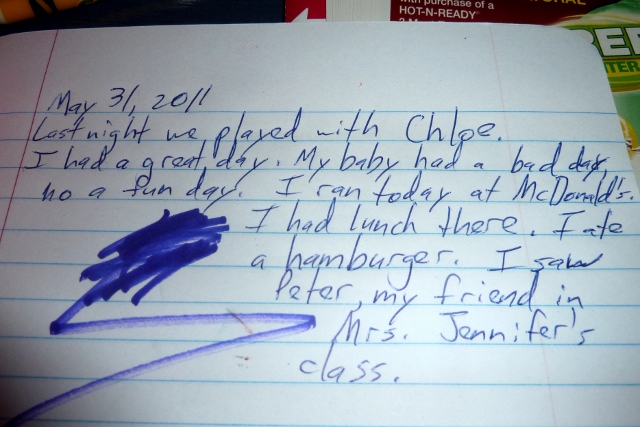 with purchase of a
HOT-N-READY
May 31, 2011
Last night we played with Chloe.
I had a great day. My baby had a bad day,
no a fun day. I ran today at McDonald's.
I had lunch there. I ate
a hamburger. I saw
Peter, my friend in
Mrs. Jennifer's
class.